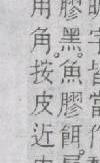 字皆當作
膠黑。魚膠餌。
用角。按皮近